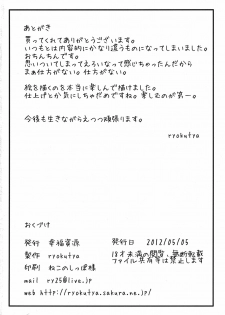 あとがき
買ってくれてありがとうございます。
いつもとは内容的にかなり違うものになってしまいました。
おちんちんです。
思いついてしまってえろいなって感じちゃったんだから
まぁ仕方がない。仕方がない。
絵を描くのを本当に楽しんで描けました。
仕上げとか気にしちゃだめですね。楽しむのが第一。
今後も生きながらえつつ頑張ります。
ryokutya
おくづけ
発行 幸福資源
発行日 2012/05/05
製作 ryokutya
印刷 ねこのしっぽ様
18才未満の閲覧、無断転載
ファイル共有等は禁止します
mail ry25@live.jp
web http://ryokutya.sakura.ne.jp/